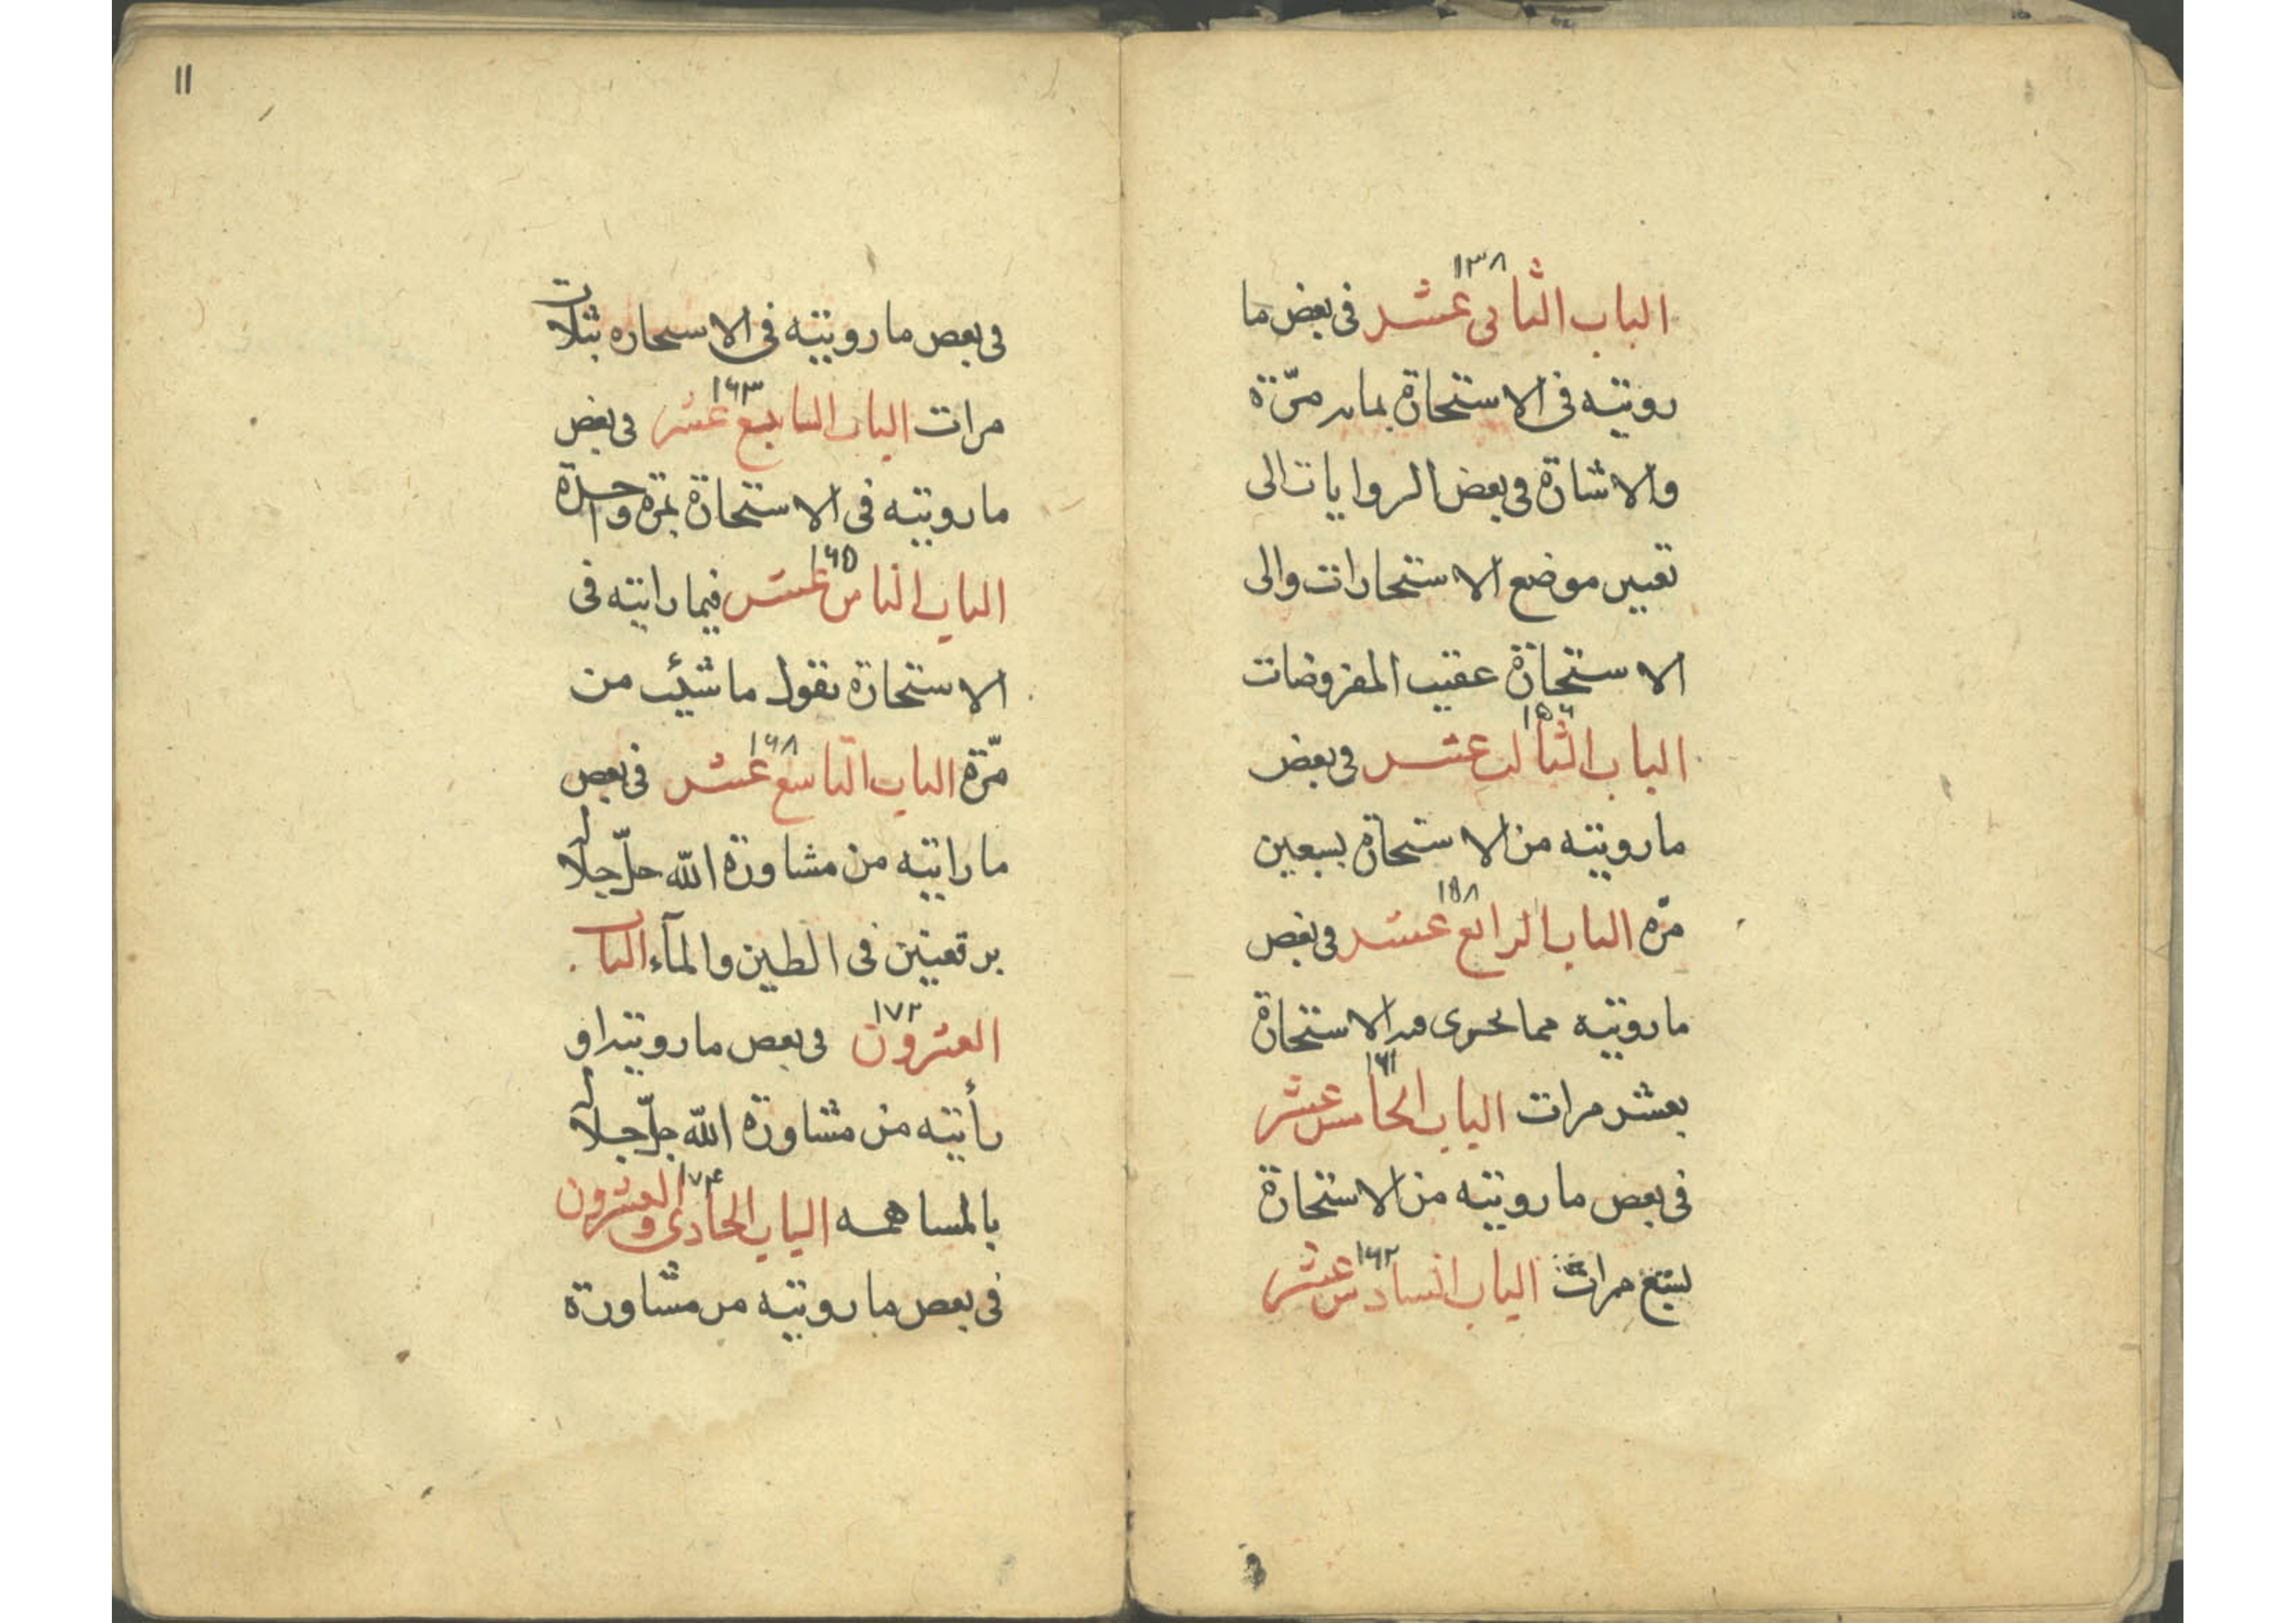 ١٣٨
الباب الثانى عشر فى بعض ما
رويته فى الاستخارة بمايه مرّة
والاشارة فى بعض الروايات الى
تعيين موضع الاستخارات والى
الاستخارة عقيب المفروضات
١٥٦
الباب الثالث عشر فى بعض
ما رويته من الاستخارة بسبعين
١٥٨
مرّه الباب الرابع عشر فى بعض
ما رويته مما يجرى فيه الاستخارة
١٦١
بعشر مرات الباب الخامس عشر
فى بعض ما رويته من الاستخارة
١٦٢
بسبع مرات الباب السادس عشر
١١
فى بعض ما رويته فى الاستخاره بثلاث
١٦٣
مرات الباب السابع عشر فى بعض
ما رويته فى الاستخارة بمرة واحدة
١٦٥
الباب الثامن عشر فيما رايته فى
الاستخارة بقول ما شئت من
١٦٨
مرّة الباب التاسع عشر فى بعض
ما رايته من مشاورة الله جلّ جلاله
برقعتين فى الطين والمآء الباب
١٧٢
العشرون فى بعض ما رويته او
رأيته من مشاورة الله جلّ جلاله
١٧٤
بالمساهمه الباب الحادى والعشرون
فى بعض ما رويته من مشاورة